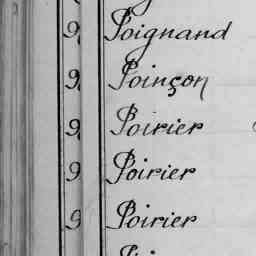 9 Poignand
9 Poinçon
9 Poirier
9 Poirier
9 Poirier